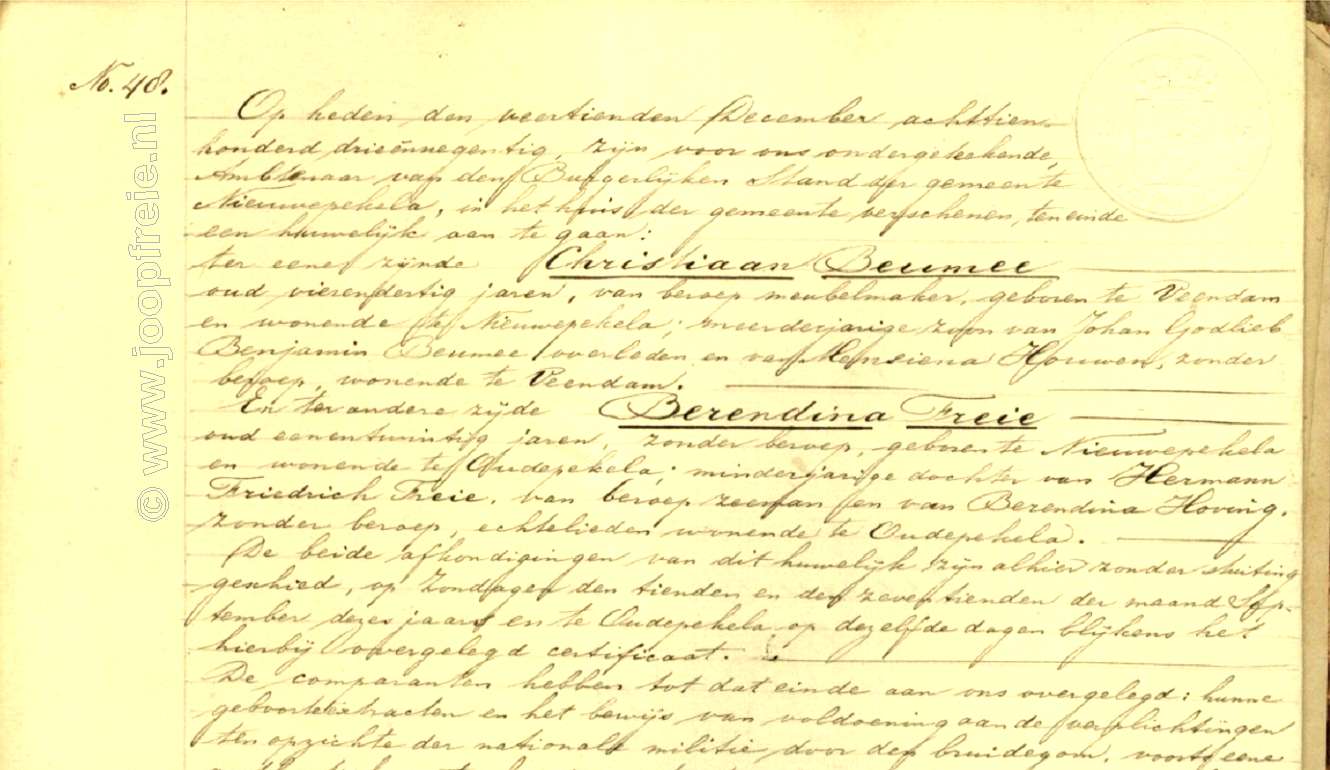 No. 48.
Op heden den veertienden December achttien-
honderd drieënnegentig, zijn voor ons ondergeteekende,
Ambtenaar van den Burgerlijken Stand der gemeente
Nieuwepekela, in het huis der gemeente verschenen, teneinde
een huwelijk aan te gaan:
ter eener zijnde Christiaan Beumee
oud vierendertig jaren, van beroep meubelmaker, geboren te Veendam
en wonende te Nieuwepekela; meerderjarige zoon van Johan Godlieb
Benjamin Beumee overleden en van Mensiena Houwen, zonder
beroep, wonende te Veendam.
En ter andere zijde Berendina Freie
oud eenentwintig jaren, zonder beroep, geboren te Nieuwepekela
en wonende te Oudepekela; minderjarige dochter van Hermann
Friedrich Freie, van beroep zeeman en van Berendina Hoving,
zonder beroep, echtelieden wonende te Oudepekela.
De beide afkondigingen van dit huwelijk zijn alhier zonder stuiting
geschied, op Zondagen den tienden en den zeventienden der maand Sep-
tember dezes jaars en te Oudepekela op dezelfde dagen blijkens het
hierbij overgelegd certificaat.
De comparanten hebben tot dat einde aan ons overgelegd: hunne
geboorteextracten en het bewijs van voldoening aan de verplichtingen
ten opzichte der nationale militie door den bruidegom, voorts eene
© www.joopfreie.nl